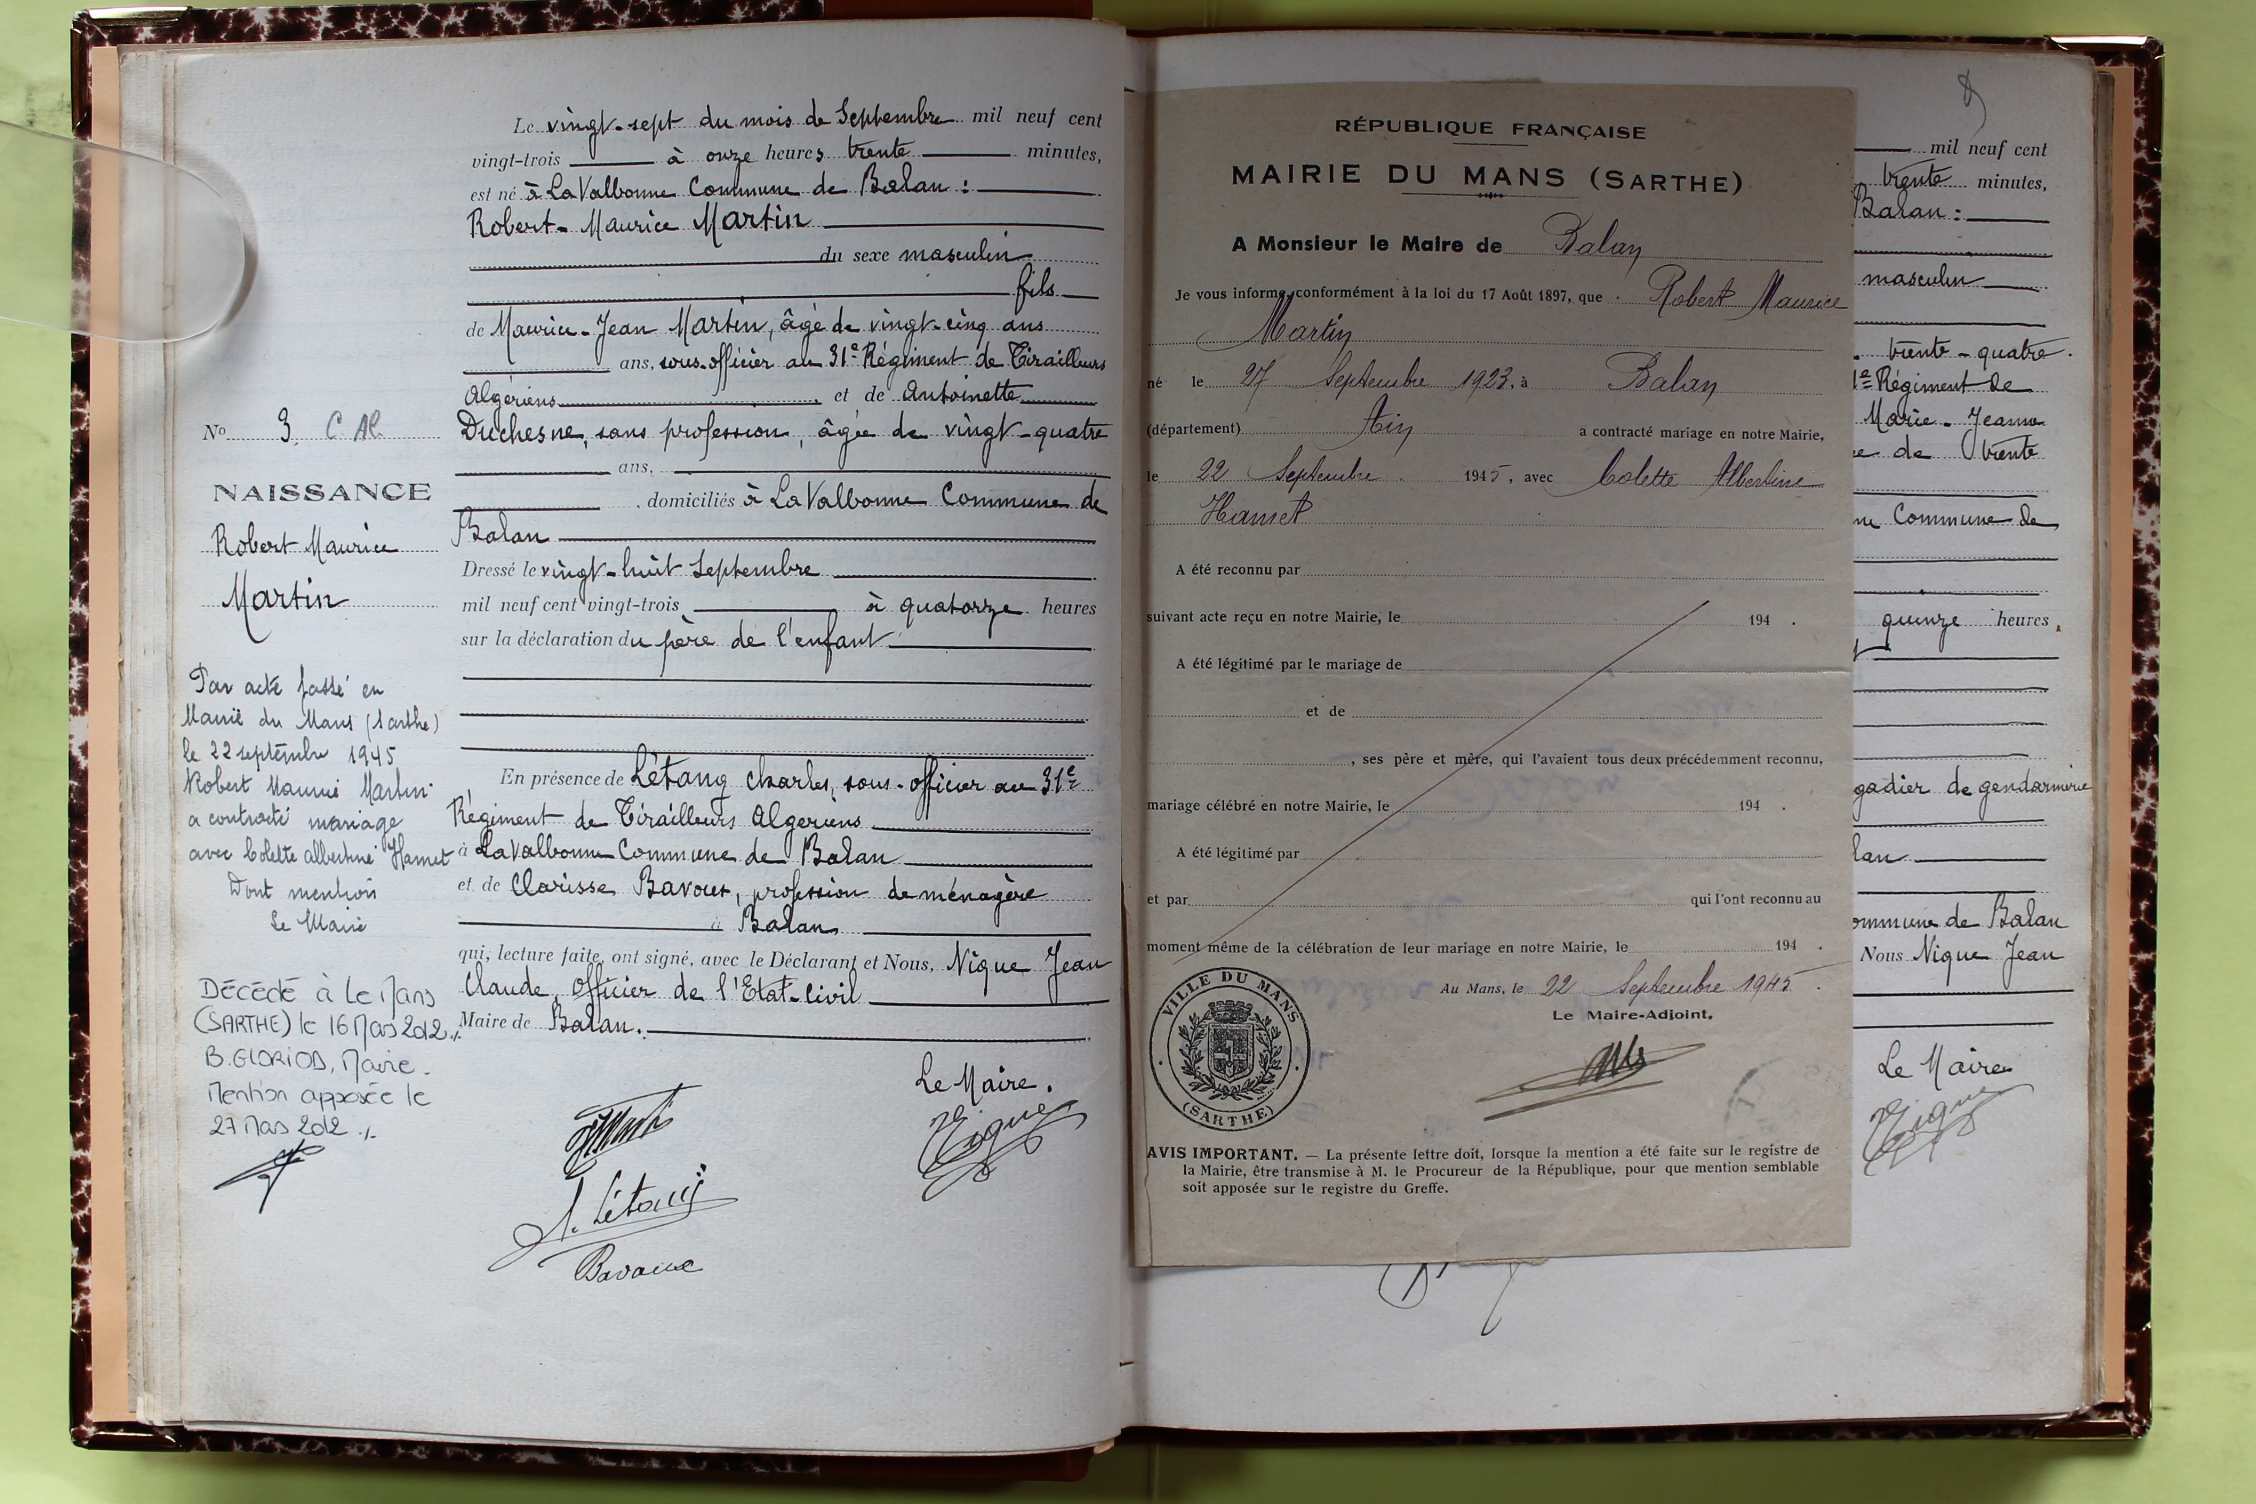 Le vingt-sept du mois de Septembre mil neuf cent
vingt-trois à onze heures trente minutes,
est né à La Valbonne Commune de Balan :
Robert-Maurice Martin
du sexe masculin
fils
de Maurice-Jean Martin, âgé de vingt-cinq ans
ans, sous-officier au 31e Régiment de Tirailleurs
Algériens et de Antoinette
Duchesne, sans profession, âgée de vingt-quatre
ans,
domiciliés à La Valbonne Commune de
Balan
Dressé le vingt-huit Septembre
mil neuf cent vingt-trois à quatorze heures
sur la déclaration du père de l'enfant
En présence de Létang Charles, sous-officier au 31e
Régiment de Tirailleurs Algeriens
à La Valbonne Commune de Balan
et de Clarisse Bavoux, profession de ménagère
à Balan
qui, lecture faite, ont signé, avec le Déclarant et Nous, Nique Jean
Claude, Officier de l'Etat-Civil
Maire de Balan.
Le Maire.
Nique
Létang
No 3
NAISSANCE
Robert Maurice
Martin
Par acte passé en
Mairie du Mans (Sarthe)
le 22 septembre 1945
Robert Maurice Martin
a contracté mariage
avec Colette Albertine Hamet
Dont mention
Le Maire
Décédé à Le Mans
(SARTHE) le 16 Mars 2012./.
B. GLORIOD, Mairie.
Mention apposée le
27 Mars 2012 ./.
RÉPUBLIQUE FRANÇAISE
MAIRIE DU MANS (SARTHE)
A Monsieur le Maire de Balan
Je vous informe, conformément à la loi du 17 Août 1897, que Robert Maurice
Martin
né le 27 Septembre 1923, à Balan
(département) Ain a contracté mariage en notre Mairie,
le 22 Septembre 1945, avec Colette Albertine
Hamet
A été reconnu par
suivant acte reçu en notre Mairie, le 194 .
A été légitimé par le mariage de
et de
, ses père et mère, qui l'avaient tous deux précédemment reconnu,
mariage célébré en notre Mairie, le 194 .
A été légitimé par
et par qui l'ont reconnu au
moment même de la célébration de leur mariage en notre Mairie, le 194 .
Au Mans, le 22 Septembre 1945.
Le Maire-Adjoint,
VILLE DU MANS
(SARTHE)
AVIS IMPORTANT. — La présente lettre doit, lorsque la mention a été faite sur le registre de
la Mairie, être transmise à M. le Procureur de la République, pour que mention semblable
soit apposée sur le registre du Greffe.
8
mil neuf cent
trente minutes,
Balan :
masculin
trente-quatre
Régiment de
Marie-Jeanne
de trente
Commune de
quinze heures
gadier de gendarmerie
lan
ommune de Balan
Nous Nique Jean
Le Maire
Nique